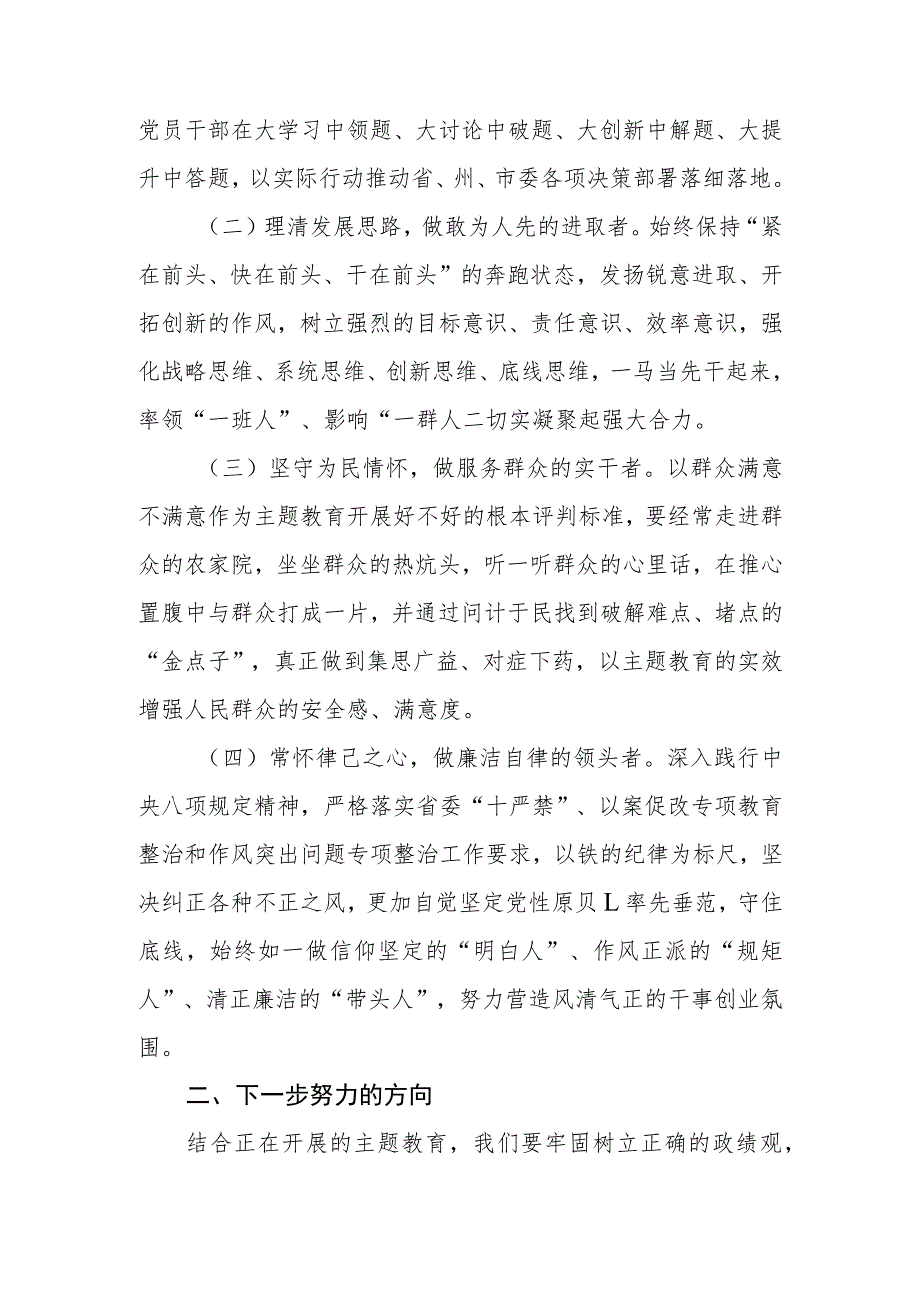 党员干部在大学习中领题、大讨论中破题、大创新中解题、大提
升中答题，以实际行动推动省、州、市委各项决策部署落细落地。
（二）理清发展思路，做敢为人先的进取者。始终保持“紧
在前头、快在前头、干在前头”的奔跑状态，发扬锐意进取、开
拓创新的作风，树立强烈的目标意识、责任意识、效率意识，强
化战略思维、系统思维、创新思维、底线思维，一马当先干起来，
率领“一班人”、影响“一群人二切实凝聚起强大合力。
（三）坚守为民情怀，做服务群众的实干者。以群众满意
不满意作为主题教育开展好不好的根本评判标准，要经常走进群
众的农家院，坐坐群众的热炕头，听一听群众的心里话，在推心
置腹中与群众打成一片，并通过问计于民找到破解难点、堵点的
“金点子”，真正做到集思广益、对症下药，以主题教育的实效
增强人民群众的安全感、满意度。
（四）常怀律己之心，做廉洁自律的领头者。深入践行中
央八项规定精神，严格落实省委“十严禁”、以案促改专项教育
整治和作风突出问题专项整治工作要求，以铁的纪律为标尺，坚
决纠正各种不正之风，更加自觉坚定党性原贝L率先垂范，守住
底线，始终如一做信仰坚定的“明白人”、作风正派的“规矩
人”、清正廉洁的“带头人”，努力营造风清气正的干事创业氛
围。
二、下一步努力的方向
结合正在开展的主题教育，我们要牢固树立正确的政绩观，